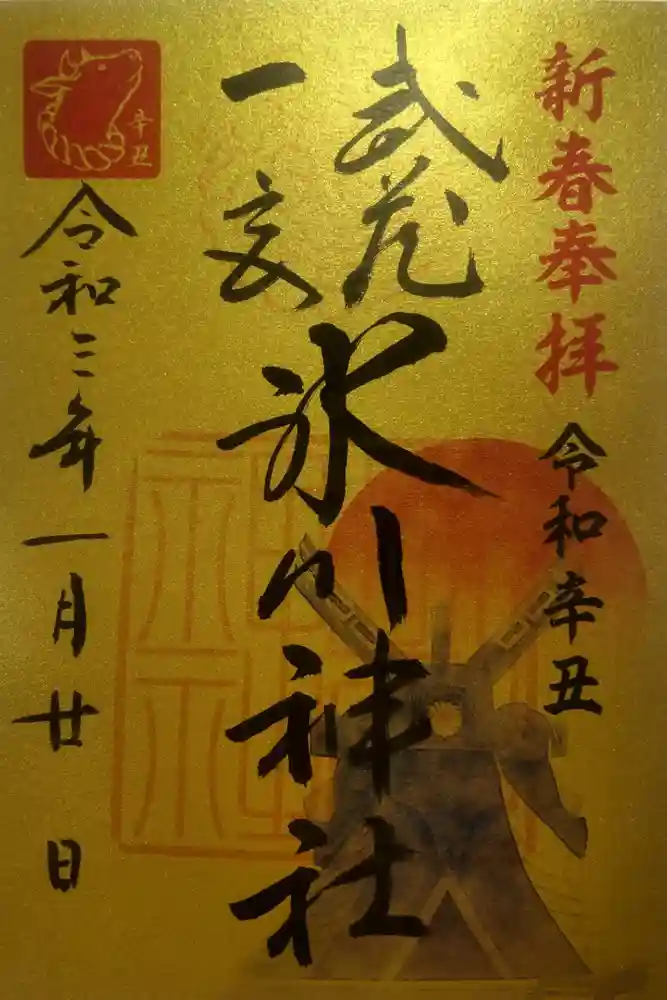 新春奉拝
令和辛丑
武蔵
一宮
氷川神社
辛丑
令和三年一月廿日